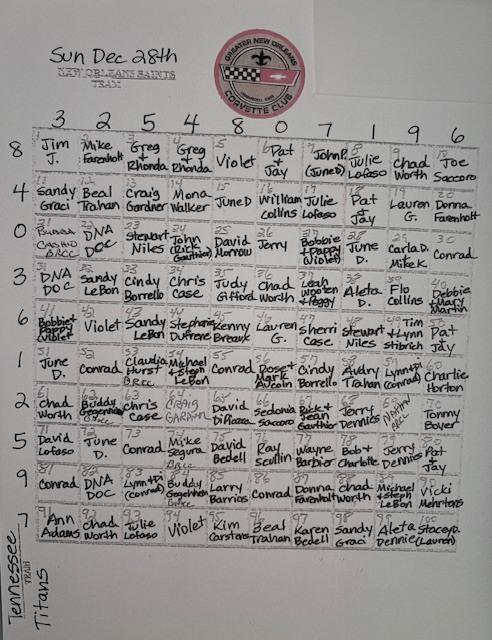 Sun Dec 28th
NEW ORLEANS SAINTS
TEAM
GREATER NEW ORLEANS
CORVETTE CLUB
3 2 5 4 8 0 7 1 9 6
8
1 Jim J.
2 Mike Farenholt
3 Greg + Rhonda
4 Greg + Rhonda
5 Violet
6 Pat + Jay
7 John P. (June D)
8 Julie Lofaso
9 Chad Worth
10 Joe Saccaro
4
11 Sandy Graci
12 Beal Trahan
13 Craig Gardner
14 Mona Walker
15 June D
16 William Collins
17 Julie Lofaso
18 Pat + Jay
19 Lauren G.
20 Donna Farenholt
0
21 Bubba Cashio BRCC
22 DNA DOC
23 Stewart Niles
24 John (Rick Gauthier)
25 David Morrow
26 Jerry
27 Bobbie + Pappy (Violet)
28 June D.
29 Carla D. Mike K.
30 Conrad
3
31 DNA DOC
32 Sandy LeBon
33 Cindy Borrello
34 Chris Case
35 Judy Gifford
36 Chad Worth
37 Leah Wooten + Peggy
38 Aleta D.
39 Flo Collins
40 Debbie + Mary Martin
6
41 Bobbie + Pappy (Violet
42 Violet
43 Sandy LeBon
44 Stephanie Dufrene
45 Kenny Breaux
46 Lauren G.
47 Sherri Case
48 Stewart Niles
49 Tim + Lynn Stibrich
50 Pat + Jay
1
51 June D.
52 Conrad
53 Claudia Hurst BRCC
54 Michael + Steph LeBon
55 Conrad
56 Rose + Mark Aucoin
57 Cindy Borrello
58 Audry Trahan
59 Lynn + Di (Conrad)
60 Charlie Horton
2
61 Chad Worth
62 Buddy Gegenheimer BRCC
63 Chris Case
64 CRAIG
65 David DiPiazza
66 Sedonia Saccaro
67 Rick + Jean Gauthier
68 Jerry Dennies
69 BRCC
70 Tommy Boyer
5
71 David Lofaso
72 June D.
73 Conrad
74 Mike Segura BRCC
75 David Bedell
76 Ray Scullin
77 Wayne Barbier
78 Bob + Charlotte
79 Jerry Dennies
80 Pat + Jay
9
81 Conrad
82 DNA DOC
83 Lynn + Di (Conrad)
84 Buddy Gegenheimer BRCC
85 Larry Barrios
86 Conrad
87 Donna Farenholt
88 Chad Worth
89 Michael + Steph LeBon
90 Vicki Mehrtens
7
91 Ann Adams
92 Chad Worth
93 Julie Lofaso
94 Violet
95 Kim Carstens
96 Beal Trahan
97 Karen Bedell
98 Sandy Graci
99 Aleta Dennie
100 Stacey D. (Lauren)
Tennessee
TEAM
Titans